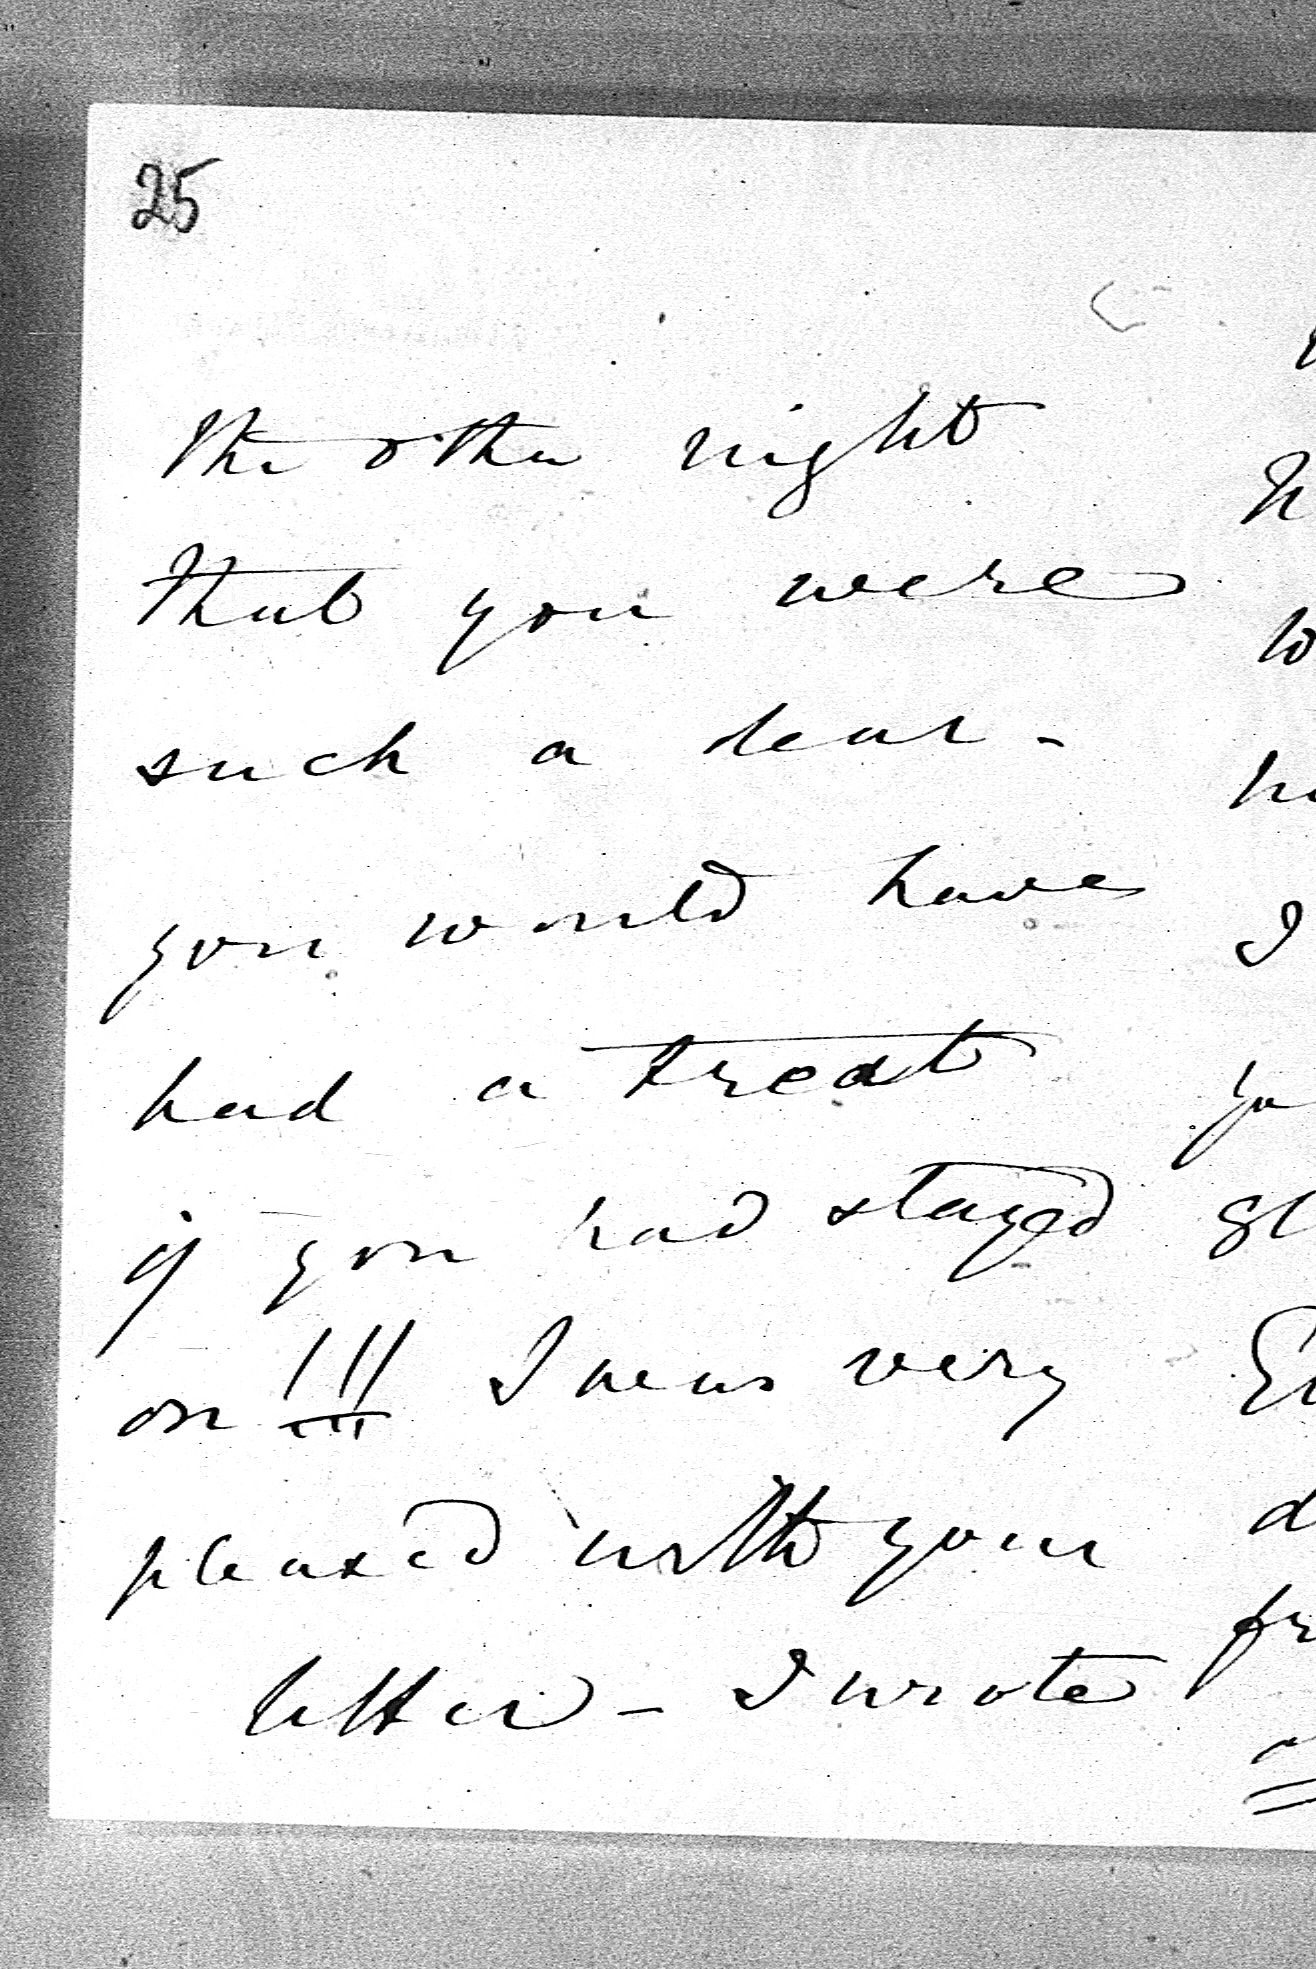 25
the other night
that you were
such a dear -
you would have
had a treat
if you had stayed
on !!! I was very
pleased with your
letter - I wrote